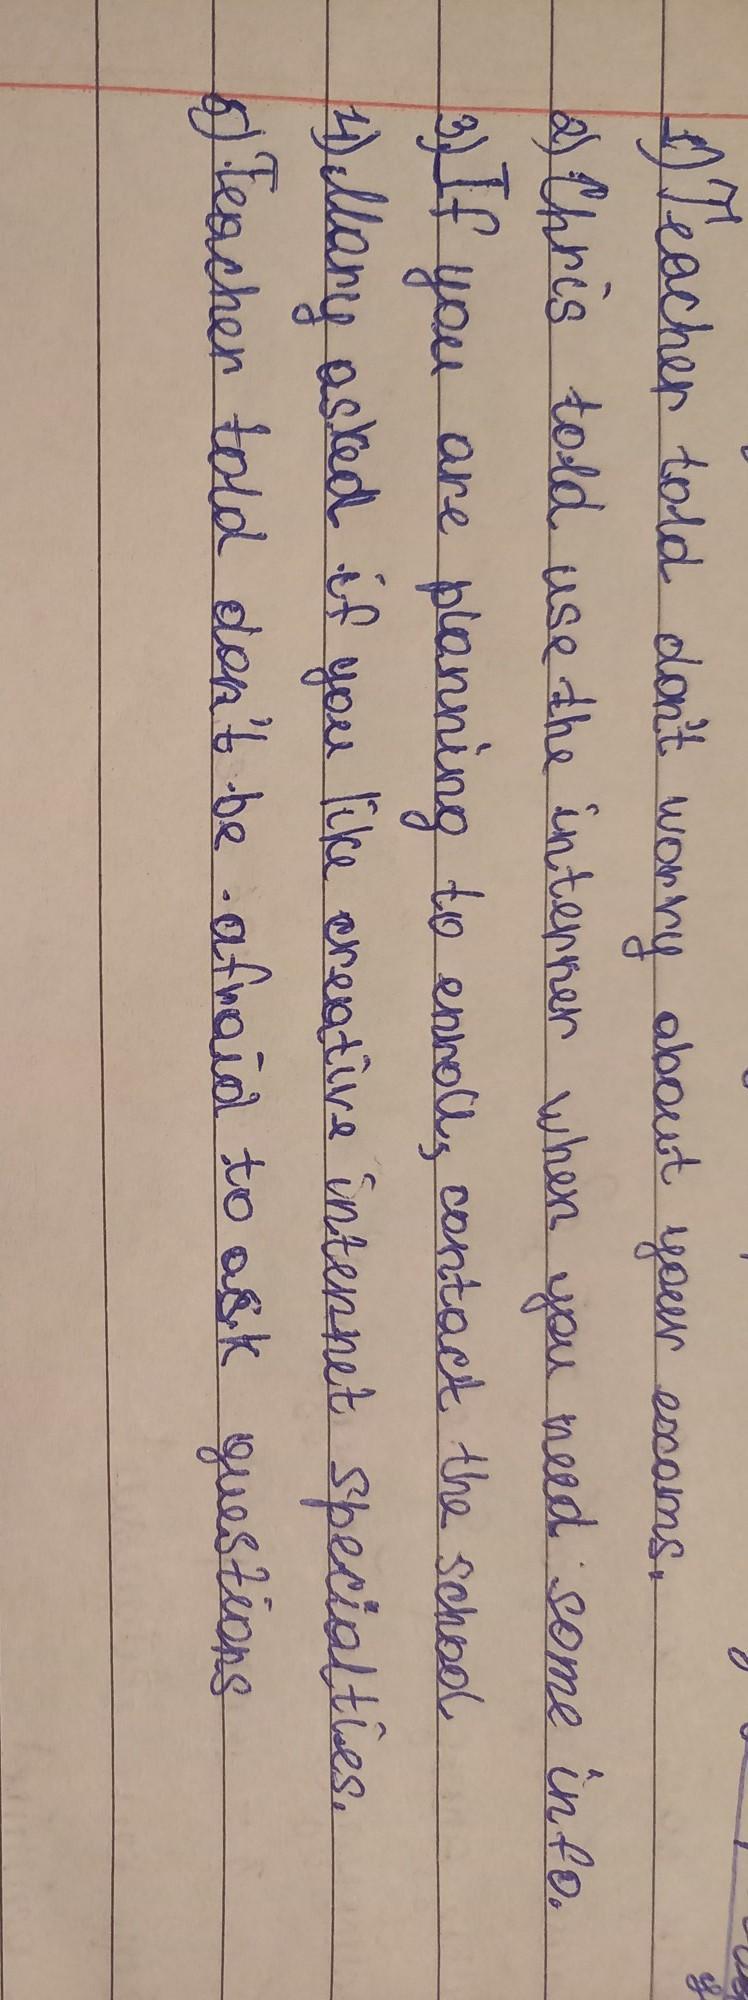 1) Teacher told don't worry about your exams.
2) Chris told use the interner when you need some info.
3) If you are planning to enroll, contact the school
4) Mary asked if you like creative internet specialties.
5) Teacher told don't be afraid to ask questions